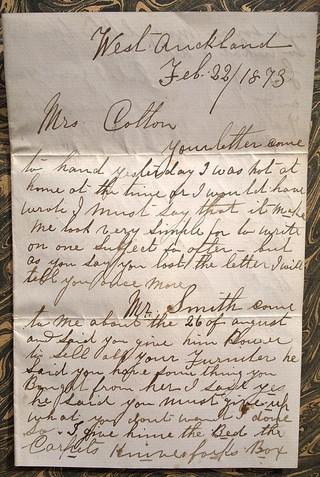 West Auckland
Feb. 22/1873
Mrs Cotton
Your letter come
to hand yesterday I was not at
home at the time or I would have
wrote I must say that it make
me look very simple for to write
on one subject so often - but
as you say you lost the letter I will
tell you once more
Mr. Smith come
to me about the 26 of august
and said you give him Power
to sell all your Furniter he
said you hope some thing you
Bought from her I said yes
he said you must give up
what you dont want I done
so. I give hime the Bed the
Carpets Knives forks Box